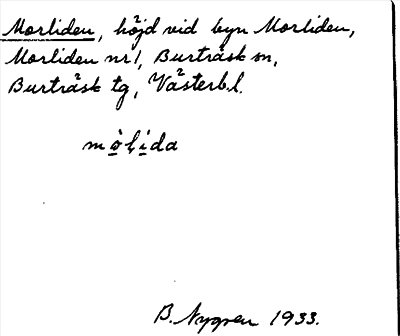 Morliden, höjd vid byn Morliden,
Morliden nr 1, Burträsk sn,
Burträsk tg, Västerb.l.
mȯ̱ḷi̱da
B. Nygren 1933.